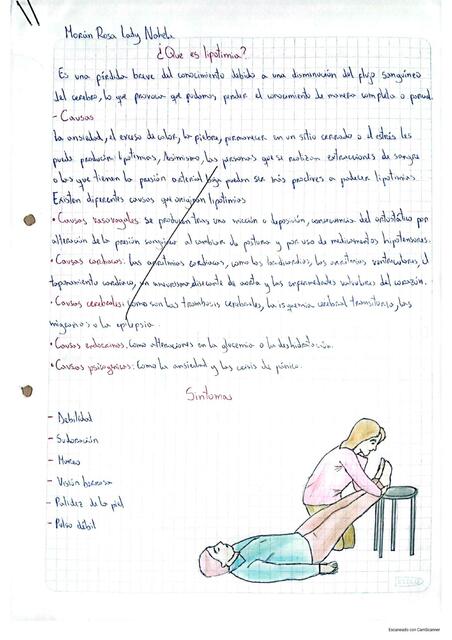 Morán Rosa Lady Nahela
¿Que es lipotimia?
Es una pérdida breve del conocimiento debido a una disminución del flujo sanguíneo
del cerebro, lo que provoca que podamos perder el conocimiento de manera completa o parcial.
- Causas
La ansiedad, el exceso de calor, la fiebre, permanecer en un sitio cerrado o el estrés les
puede producir lipotimias, Asimismo, las personas que se realizan extracciones de sangre
o las que tienen la presión arterial baja pueden ser más proclives a padecer lipotimias.
Existen diferentes causas que originan lipotimias
• Causas vasovagales: Se producen tras una micción o deposición, consecuencia del ortostático por
alteración de la presión sanguínea al cambiar de postura y por uso de medicamentos hipotensores.
• Causas cardiacas: Las arritmias cardiacas, como las bradicardias, las arritmias ventriculares, el
taponamiento cardíaco, un aneurisma disecante de aorta y las enfermedades valvulares del corazón.
• Causas cerebrales: Como son las trombosis cerebrales, la isquemia cerebral transitoria, las
migrañas o la epilepsia.
• Causas endocrinas: Como alteraciones en la glucemia o la deshidratación.
• Causas psicogénicas: Como la ansiedad y las crisis de pánico.
Sintomas
- Debilidad
- Sudoración
- Mareo
- Visión borrosa
- Palidez de la piel
- Pulso débil
Escaneado con CamScanner